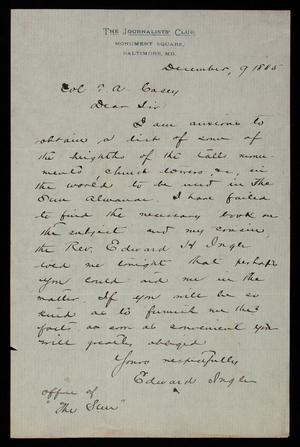 THE JOURNALISTS' CLUB,
MONUMENT SQUARE,
BALTIMORE, MD.
December, 9 1885
Col T. A. Casey
Dear Sir
I am anxious to
obtain a list of some of
the heights of the talls monu-
ments, church towers, &c., in
the world to be used in The
Sun Almanac. I have failed
to find the necessary book on
the subject and my cousin,
the Rev. Edward H Ingle
told me tonight that perhaps
you could aid me in the
matter. If you will be so
kind as to furnish me the
fact, as soon as convenient you
will greatly obliged
Yours respectfully
Edward Ingle
office of
"The Sun"